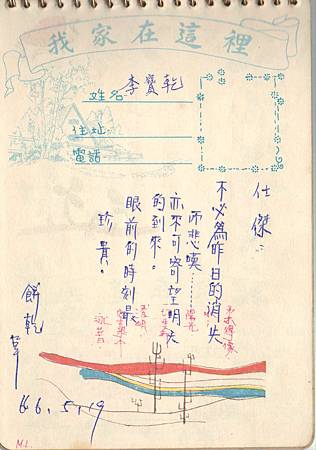 我家在這裡
姓名 李寶乾
住址
電話
仕傑：
不必為昨日的消失
而悲嘆……
亦不可寄望明天
的到來。
眼前的時刻最
珍貴。
餅乾
草
66.5.19
M.L.